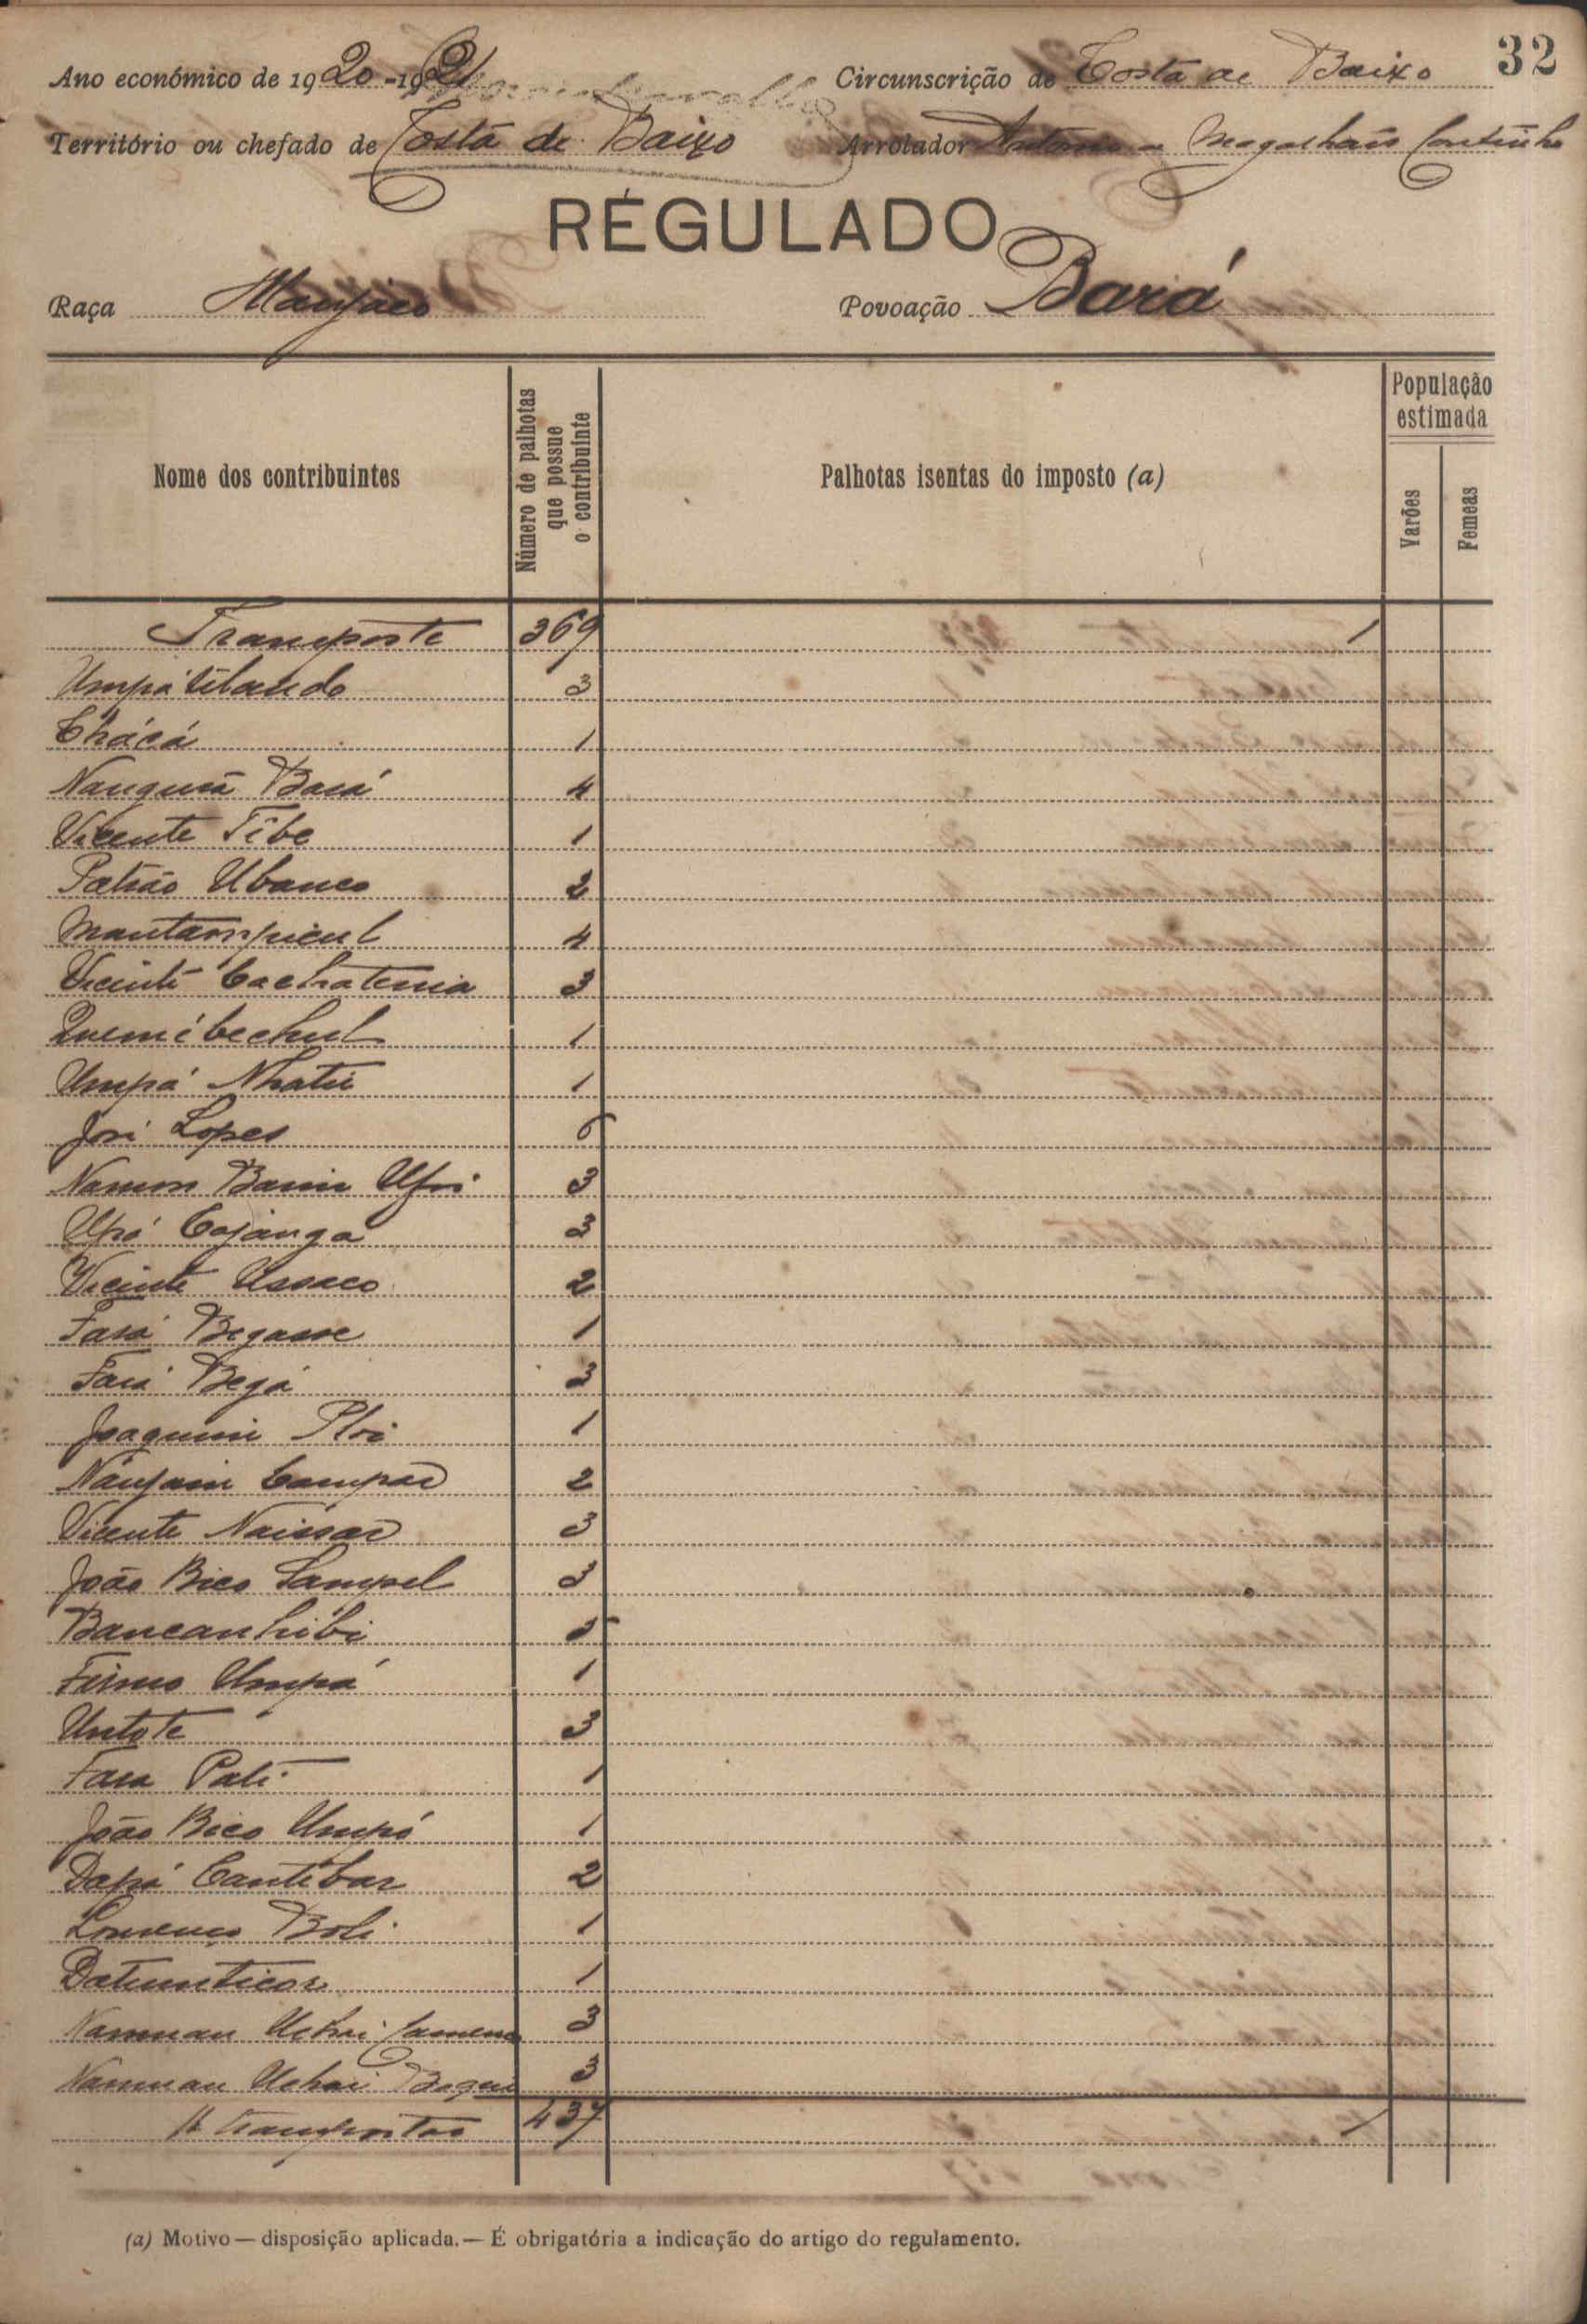 32
Ano económico de 1920-1921 Circunscrição de Costa de Baixo
Território ou chefado de Costa de Baixo Arrolador Antonio de Magalhães Coutinho
RÉGULADO
Raça Manjaco Povoação Bará
Nome dos contribuintes
Número de palhotas que possue o contribuinte
Palhotas isentas do imposto (a)
População estimada
Varões
Femeas
Transporte 369 1
Umpátibando 3
Chácá 1
Nanguiá Bará 4
Vicente Tibe 1
Patrão Ubanco 2
Mantampicul 4
Vicente Cachatenia 3
Quemébechul 1
Umpá Nhatú 1
José Lopes 6
Namon Banin Ufoi 3
Upá Cajanga 3
Vicente Ussaco 2
Fará Begasse 1
Fará Begá 3
Joaquim Ploi 1
Naujain Campar 2
Vicente Naissar 3
João Bico Sampel 3
Bancanhibi 5
Firmo Umpá 1
Untote 3
Fara Pati 1
João Bico Umpó 1
Dapá Cantibar 2
Lourenço Boli 1
Datumticar 1
Namuan Uchai Camena 3
Namuan Uchai Bequi 3
A transportar 437 1
(a) Motivo — disposição aplicada. — É obrigatória a indicação do artigo do regulamento.